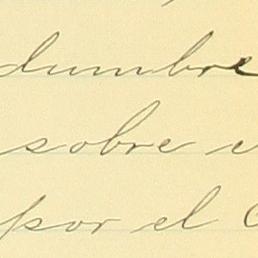 dumbre
sobre
por el